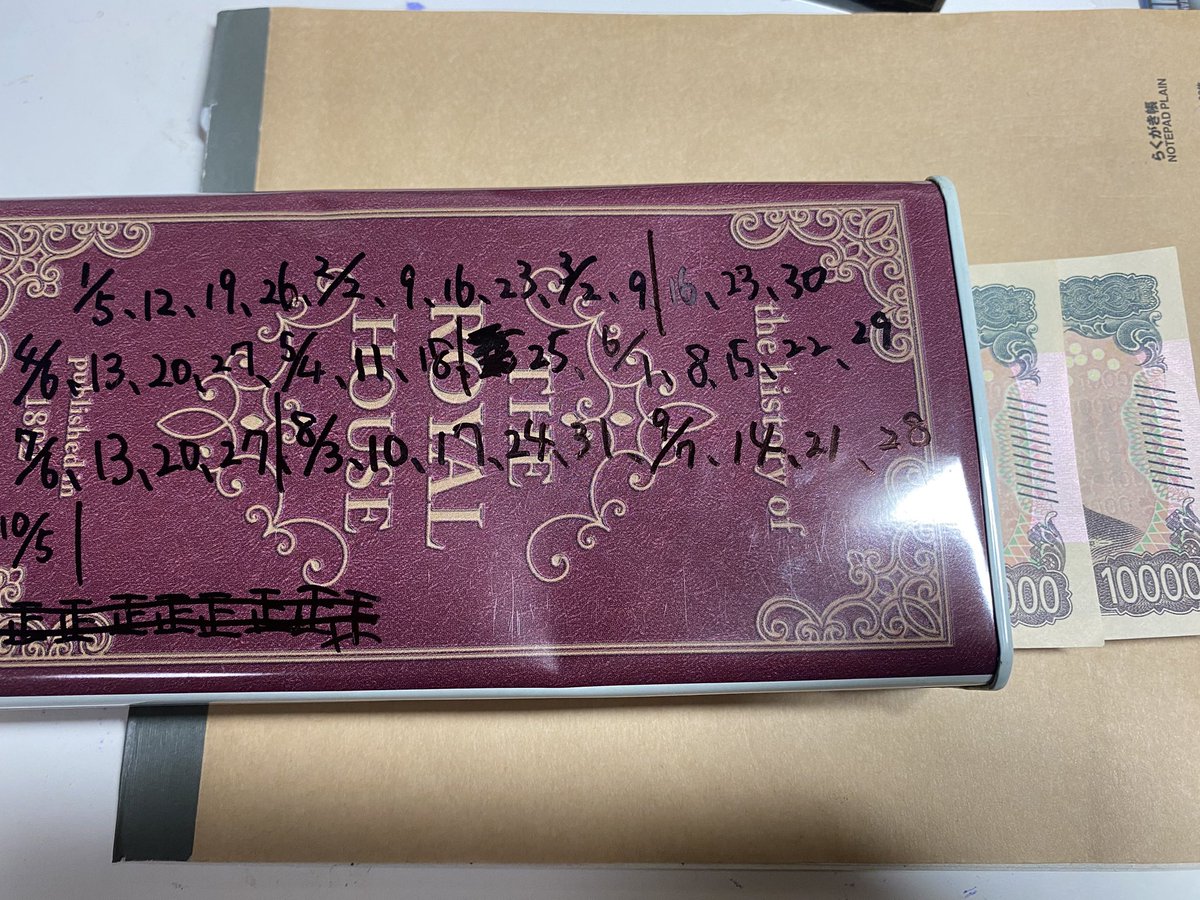 らくがき帳
NOTEPAD PLAIN
1/5、12、19、26、2/2、9、16、23、3/2、9|16、23、30
4/6、13、20、27、5/4、11、18| 25、6/1、8、15、22、29
7/6、13、20、27、|8/3、10、17、24、31、9/7、14、21、28
10/5|
the history of
THE
ROYAL
HOUSE
published in
000
10000